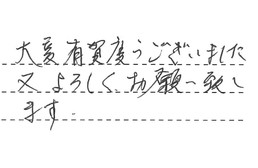 大変有賀度うございました
又よろしくお願い致し
ます.